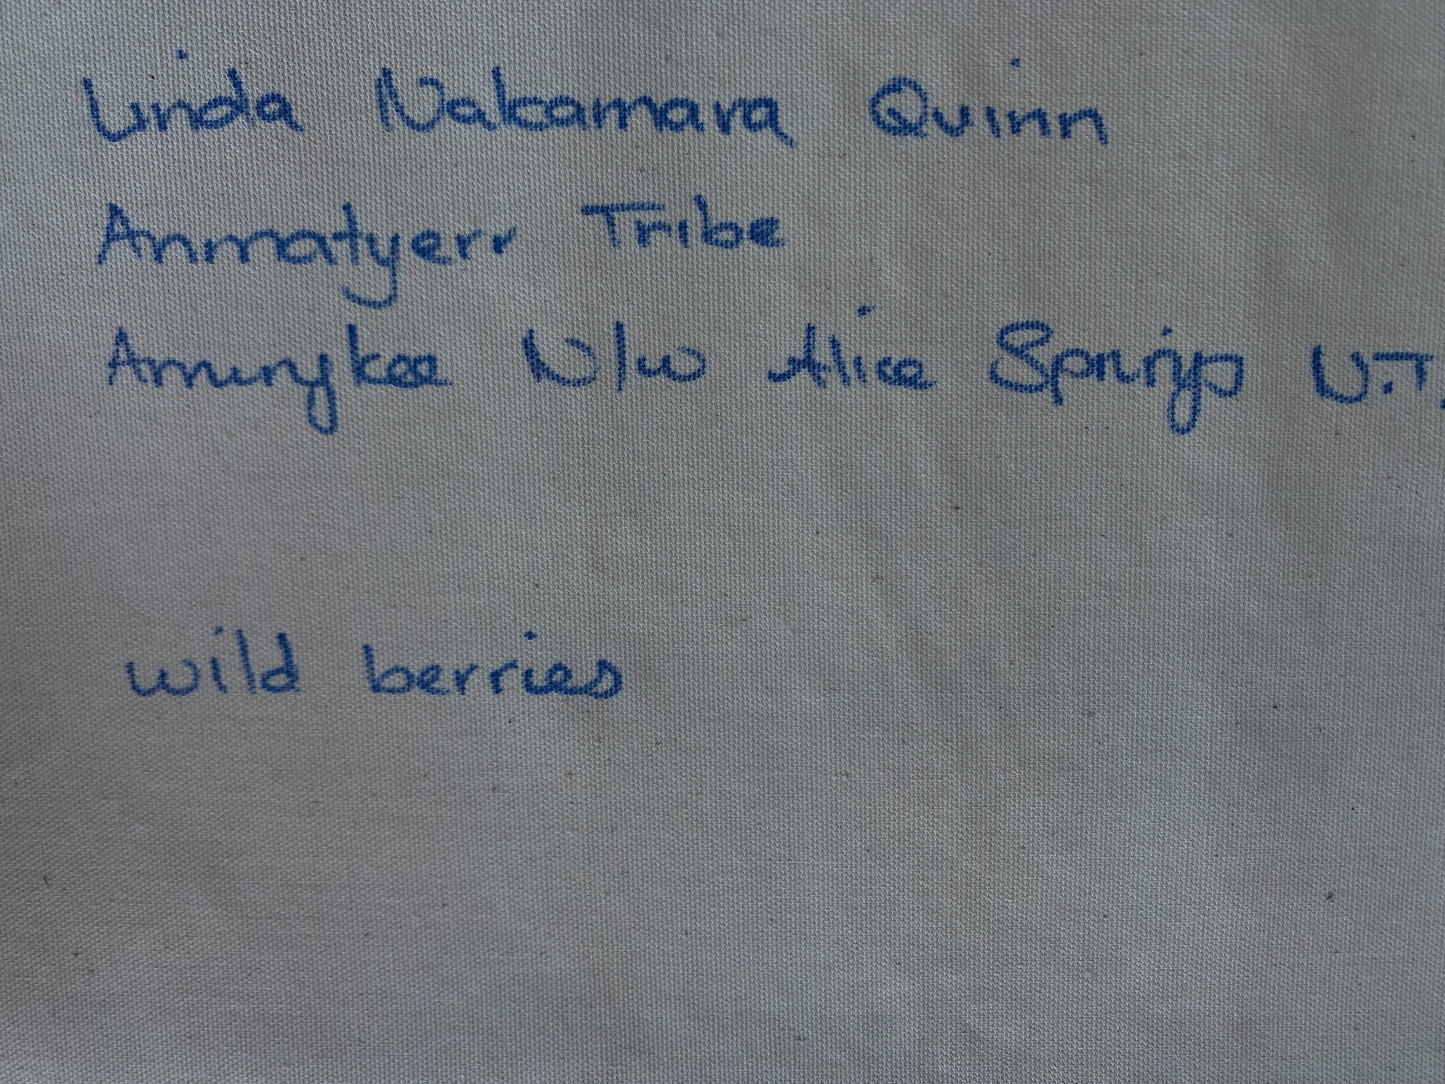 Linda Nakamara Quinn
Anmatyerr Tribe
Amungkee N/W Alice Springs N.T.
wild berries